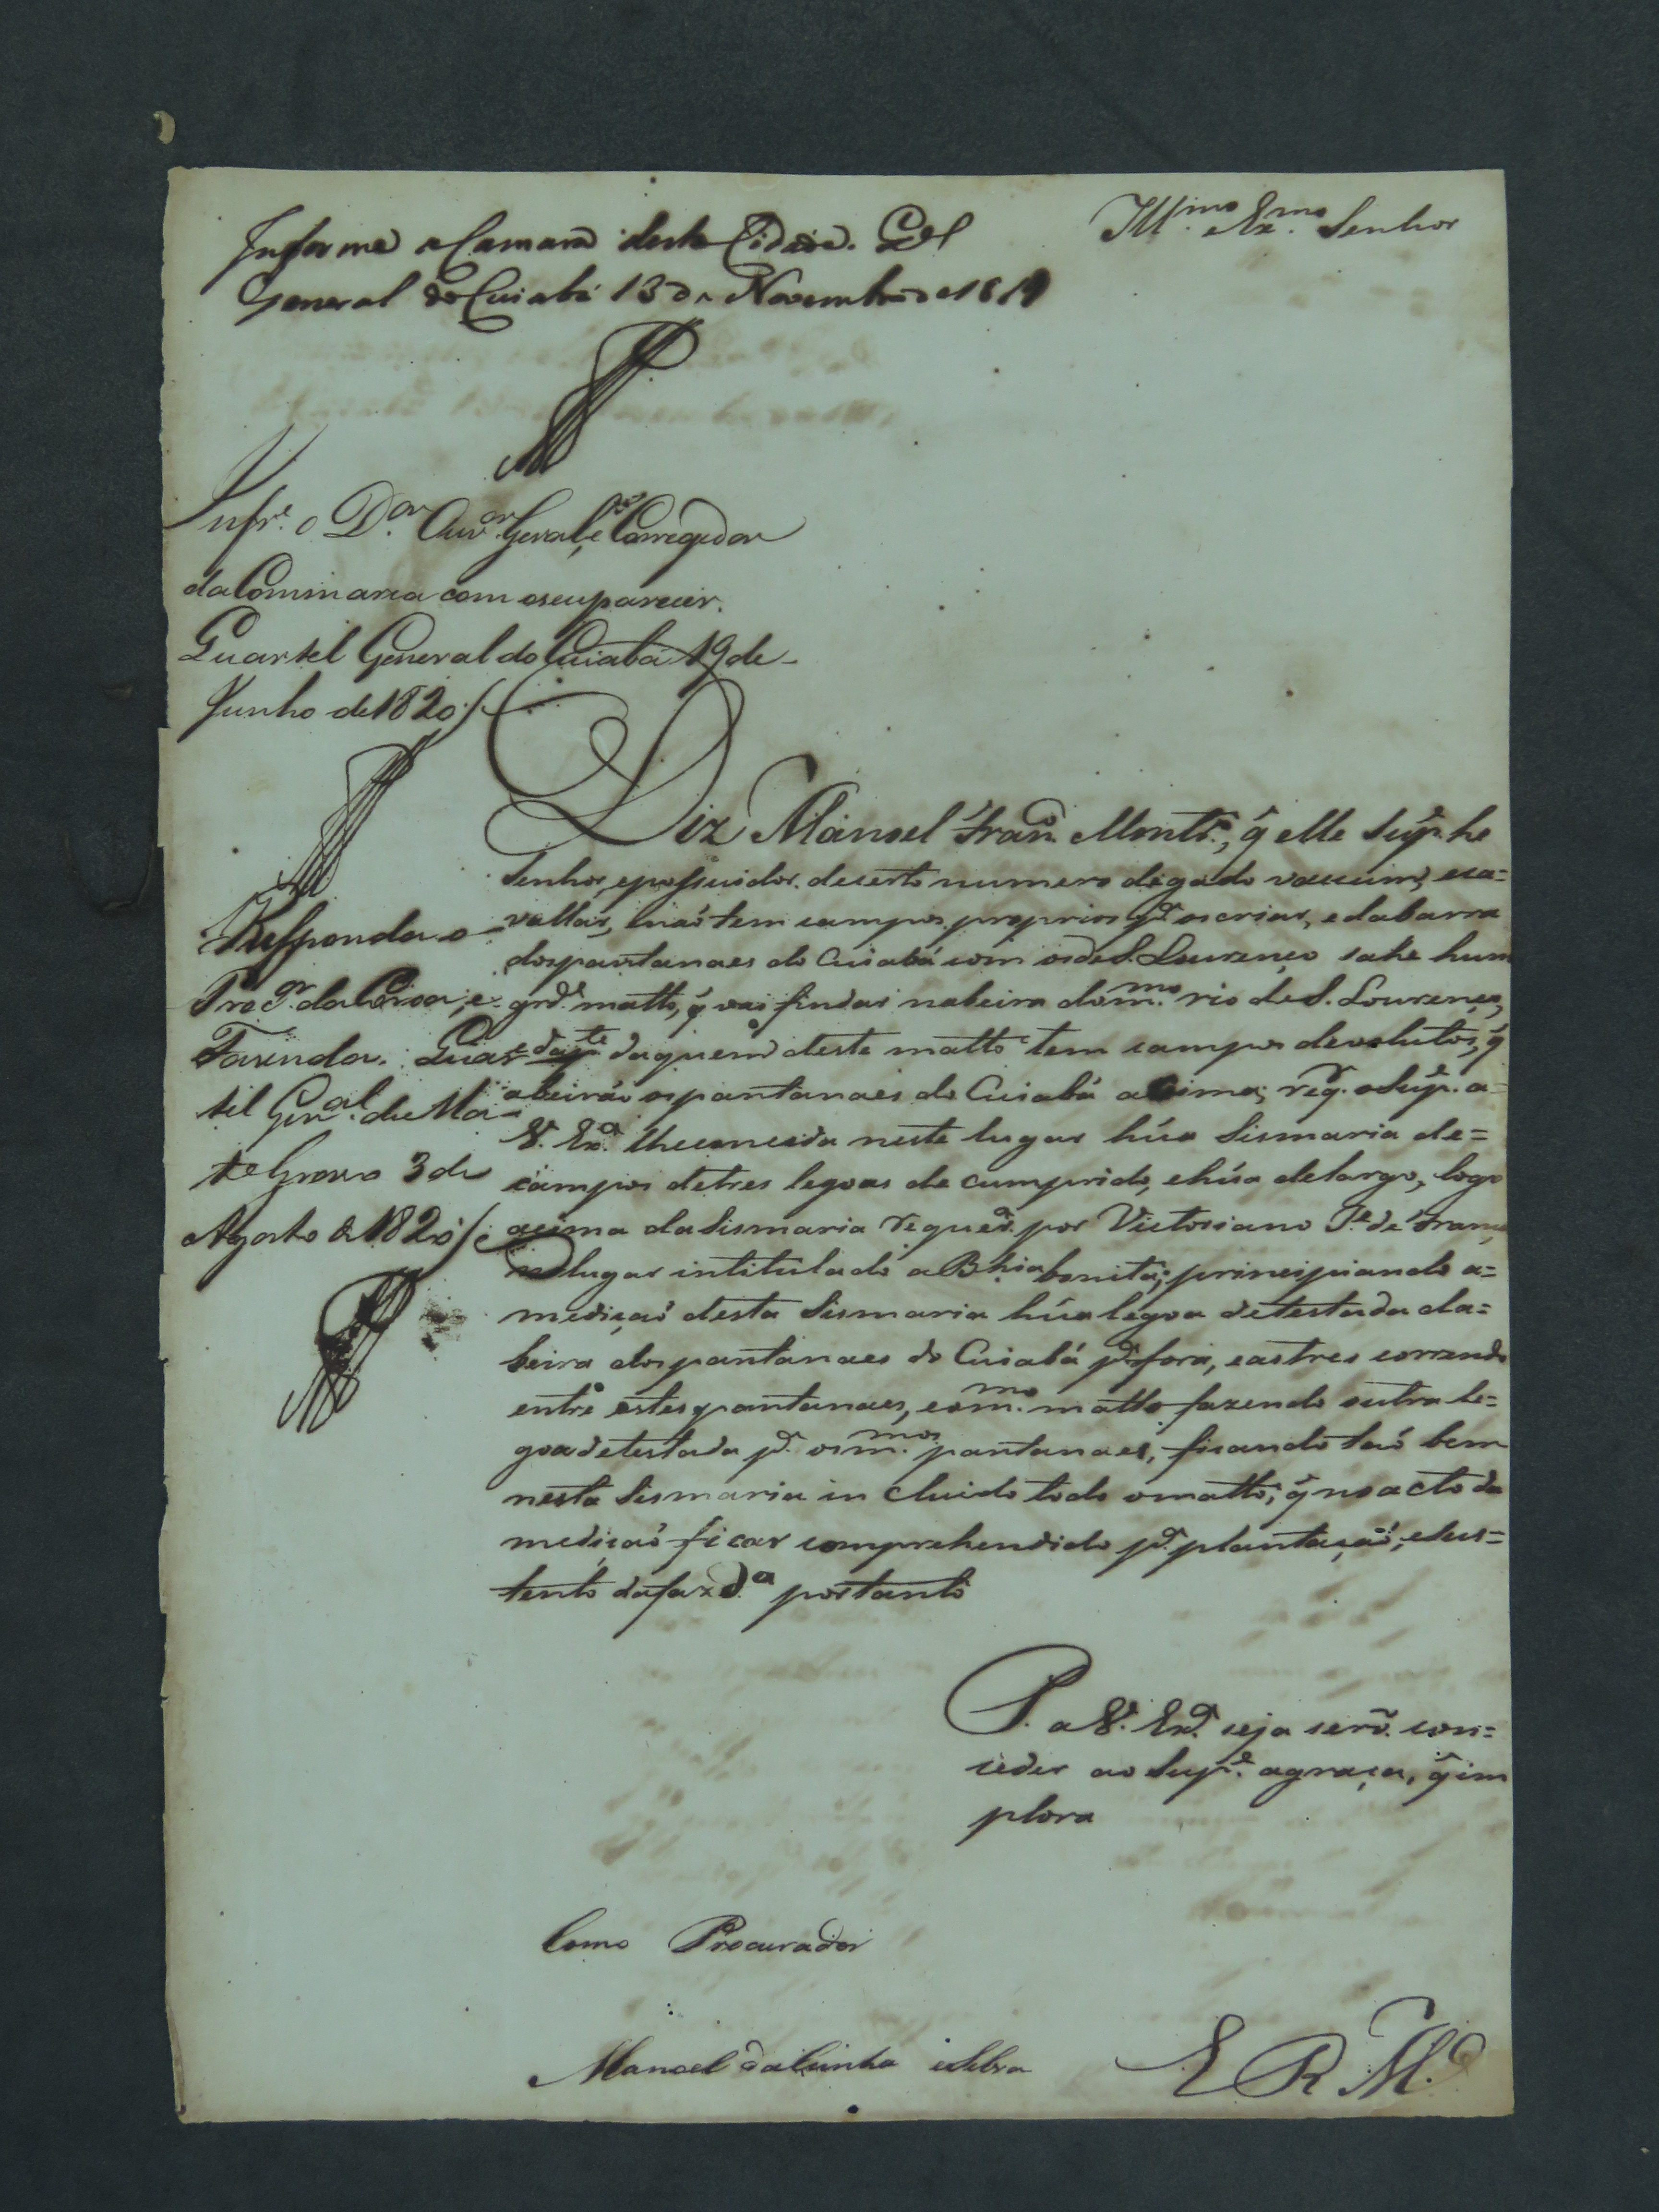 Ill.mo e Ex.mo Senhor
Informe a Camara desta Cidade. Q.el
General do Cuiabá 13 de Novembro de 1819
Infr.e o D.or Ouv.or Geral, e Corregedor
da Commarca com o seu parecer.
Quartel General do Cuiabá 19 de
Junho de 1820
Responda o
Proc.or da Coroa, e
Fazenda. Quar
tel Gen.al de Ma
to Grosso 3 de
Agosto de 1820
Diz Manoel Fran.co Montr.o, q̃ elle Sup.e he
Senhor, e possuidor de certo numero de gado vaccum, e ca=
vallar, e não tem campos proprios p.a os criar, e da barra
dos pantanaes do Cuiabá com os de S. Lourenço sahe hum
grd.e matto, q̃ vai findar na beira do m.mo rio de S. Lourenço,
e da p.te daquem deste matto tem campos devolutos, q̃
abeirão os pantanaes do Cuiabá acima; req.r o Sup.e a
V. Ex.a lhe conceda neste lugar húa Sismaria de=
campos de tres legoas de cumprido, e húa de largo, logo
acima da Sismaria requer.da por Victoriano J.e de França
no lugar intitulado a Bahia bonita; principiando a=
medição desta Sismaria húa legoa de testada da=
beira dos pantanaes do Cuiabá p.a fora, e as tres correndo
entre estes pantanaes, e o m.mo matto fazendo outra le=
goa de testada p.a os m.mos pantanaes, ficando tão bem
nesta Sismaria incluido todo o matto, q̃ no acto da
medição ficar comprehendido p.a plantação, e sus=
tento da faz.da portanto
P. a V. Ex.a seja serv.o con=
ceder ao Sup.e a graça, q̃ im
plora
Como Procurador
Manoel da Cunha
E R M.ce